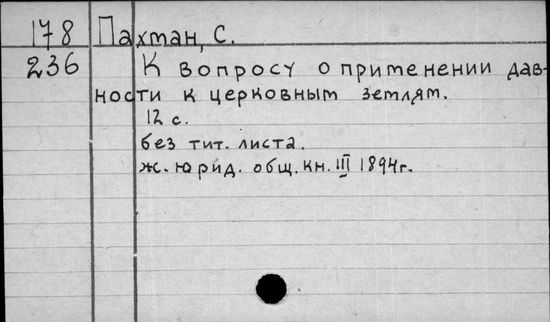 178 Пахман, С.
236 К вопросу о применении дав-
ности к церковным землям.
12 с.
без тит. листа.
ж. юрид. общ. кн. III 1894г.